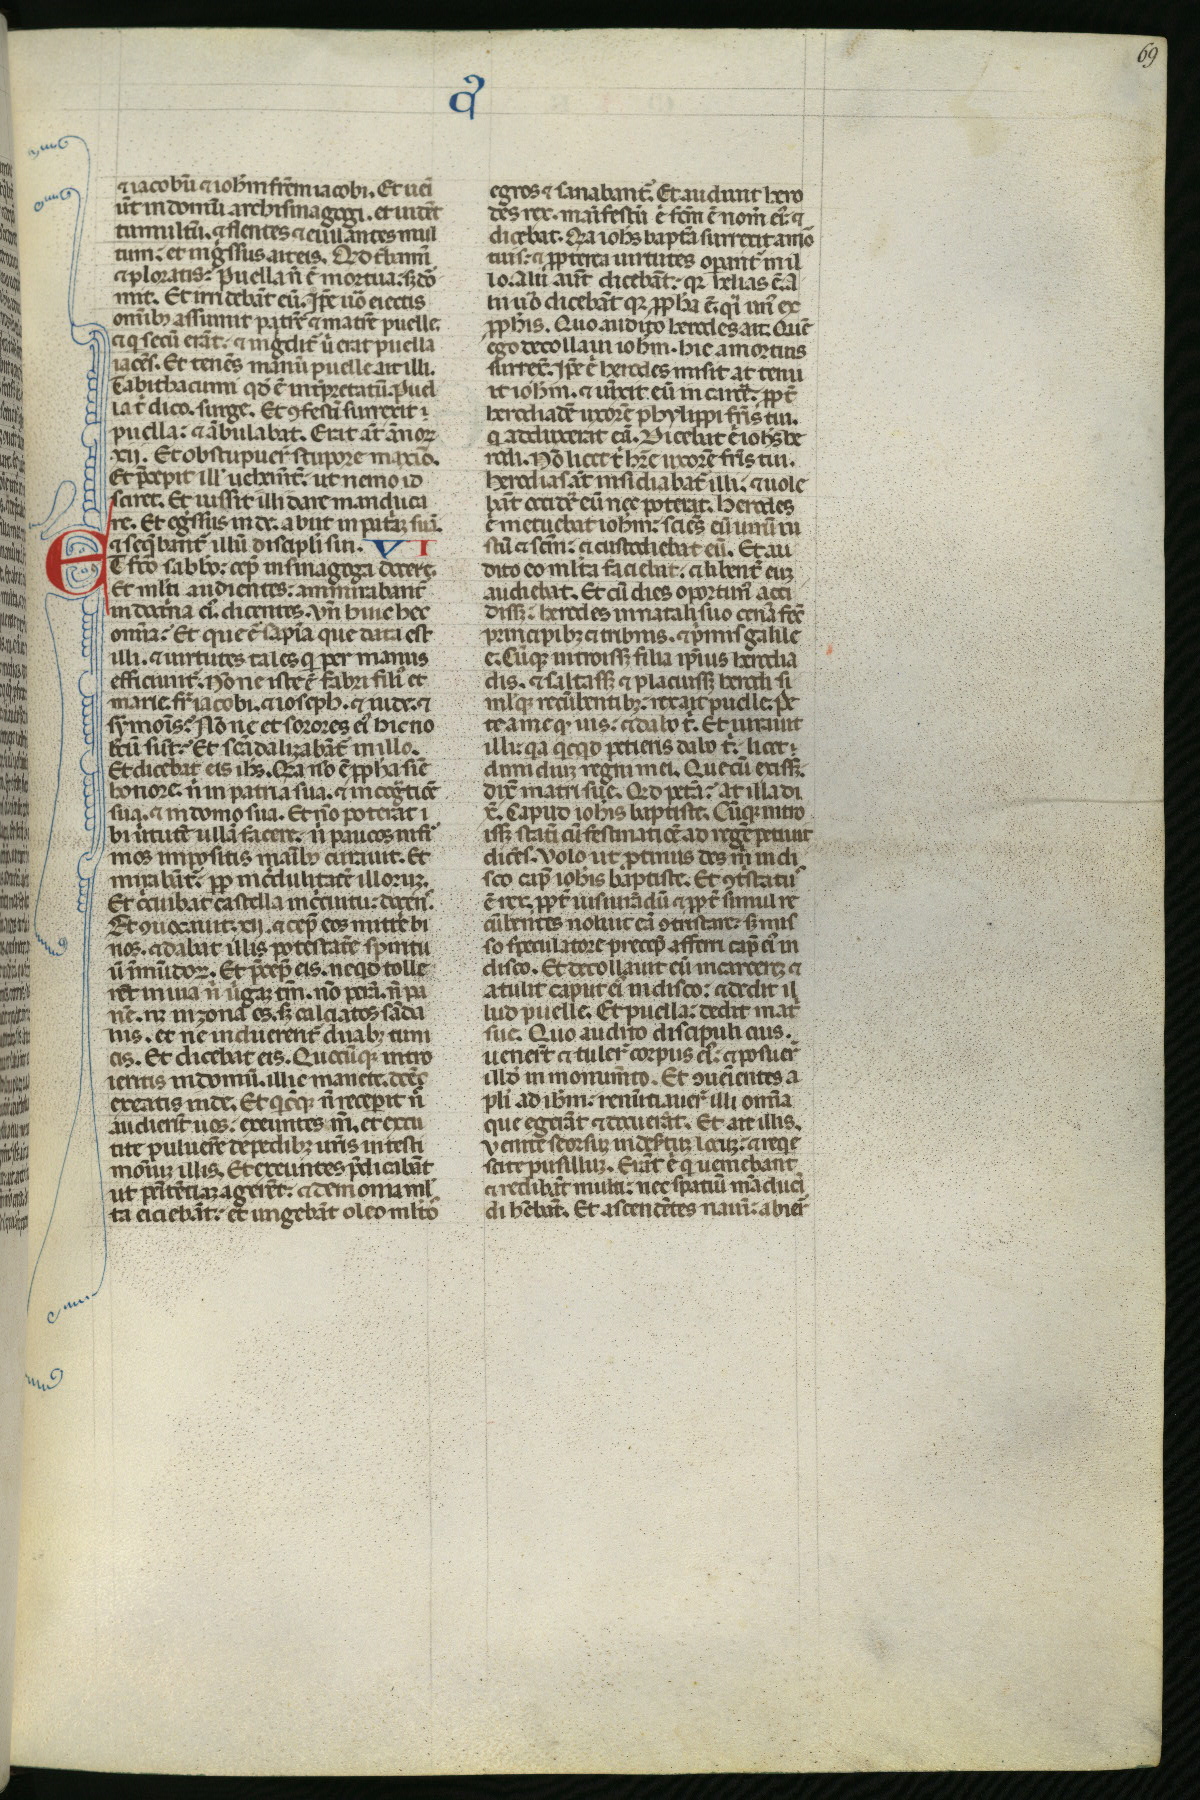 69
& iacobū & ioh̄m frēm iacobi. Et ueī
ūt in domū archisinagogi. et uidēt
tumultū. & flentes & eiulantes mul
tum. et ingressus ait eis. Qd t̄bamī
& ploratis. Puella n̄ ē mortua. s; dor
mit. Et irridebāt eū. Ipse uō eiectis
omīb; assumit patrē & matrē puelle.
& q secū erāt. & ingdit̄ ū erat puella
iacēs. Et tenēs manū puelle ait illi.
Tabithacumi qd ē inrpretatū. Puel
la t dico. surge. Et ꝯfestī surrexit
puella: & ābulabat. Erat āt ānoꝝ
xij. Et obstupuer̄ stupore maxīo.
Et p̄cepit ill uehem̄t. ut nemo id
sciret. Et iussit illi dare manduca
re. Et egssus inde. abiit in patāz suā.
& seqbant̄ illū discipli sui. VI
ET fc̄o sabb̄o: cep in sinagoga docere.
Et mlti audientes: ammirabant̄
in doct̄na eī. dicentes. Vn̄ huic hec
omīa. Et que ē sapīa que data est
illi. & uirtutes tales q per manus
efficiunt̄. Nōne iste ē fabri filī et
marie. fr̄ iacobi. & ioseph. & iude. &
symonīs. Nōne et sorores eī hic no
bcū sūt. Et scādalizabāt̄ in illo.
Et dicebat eis ih̄s. Qia nō ē ꝓpha siē
honore. n̄ in patria sua. & in cogt̄iōē
sua. & in domo sua. Et nō poterat i
bi ūtutē ullā facere. n̄ paucos infī
mos impositis manīb; curauit. Et
mirabāt̄ ꝓp incredulitatē illoruꝝ.
Et c̄cuibat castella in c̄cuitu: docens.
Et ꝯuocauit. xij. & cep eos mittē bi
nos. & dabat illis potestatē spirituū
ū īmūdoꝝ. Et p̄cep eis. ne qd tolle
rēt in uia n̄ ūgaz tm̄. nō perā. n̄ pa
nē. nꝝ in zona es. s; calciatos sāda
liis. et ne induerent̄ duab; tuni
cis. Et dicebat eis. Quocūq; intro
ieritis in domū. illic manete. donec
exeatis inde. Et qcq; n̄ recepit n̄
audierīt uos: exeuntes in̄. et excu
tite puluerē de pedib; ur̄is in testi
moniuz illis. Et exeuntes p̄dicabāt
ut penitētiaz agerēt. & demonia ml
ta eiciebāt. et ungebāt oleo mlto
egros & sanabant̄. Et audiuit hero
des rex. manifestū ē fcm ē nom̄ eī. &
dicebat. Qia ioh̄s bapta surrexit a mo
tuis. & ꝓpterea uirtutes operant̄ in il
lo. Alii aut̄ dicebāt. qꝛ helias ē. A
lii uō dicebāt qꝛ ꝓpha ē. q̄i un̄ ex
ꝓphis. Quo audito herodes ait. Quē
ego decollaui ioh̄m. hic a mortuis
surrex̄. Ipse ē herodes misit ac tenu
it ioh̄m. & uinxit eū in carcē. ꝓpt̄
herodiadē uxorē phylippi fr̄is sui.
q adduxerat eā. Dicebat ē ioh̄s he
rodi. Nō licet t hr̄e uxorē fr̄is tui.
Herodias āt insidiabat̄ illi. & uole
bāt occidē eū nec poterāt. Herodes
ē metuebat ioh̄m. sciēs eū uirū iu
stū & scm̄: & custodiebat eū. Et au
dito eo mlta faciebat. & libent̄ euz
audiebat. Et cū dies oportun̄ acci
diss;. herodes in natali suo cenā fec̄
principib; & tribunis. & p̄mis galile
e. Cūq; introiss; filia ipsius herodia
dis. & saltass; & placuiss; herodi si
mlq; recūbentib;. rex ait puelle. Pe
te a me qꝛ uis. & dabo t. Et iurauit
illi. qa qcqd petieris dabo t. licet
dimidiuz regni mei. Que cū exiss;.
dix̄ matri sue. Qd petā. At illa di
x̄. Capud ioh̄is baptiste. Cūq; intro
iss; stati cū festinatiōe ad regē petiuit
dicēs. Volo ut ꝓtinus des m̄ in di
sco cap̄ ioh̄is baptiste. Et ꝯtstatus
ē rex. ꝓpt̄ iusiurādū & ꝓpt̄ simul re
cūbentes noluit eā ꝯtristare. s; mis
so speculatore precep afferri cap̄ eī in
disco. Et decollauit eū in carcerez &
atulit caput eī in disco: & dedit il
lud puelle. Et puella: dedit mat̄
sue. Quo audito discipuli eius.
uenert̄ & tuler̄ corpus eī: & posuer̄
illd in monumto. Et ꝯuenientes a
pli ad ih̄m. renūtiauer̄ illi omīa
que egerāt & docuerāt. Et ait illis.
Venite seorsuz in desertuz locuz. & reqe
scite pusilluz. Erāt ē q ueniebant
& redibāt multi. nec spatiū māducā
di hēbāt. Et ascendētes nauī: abier̄